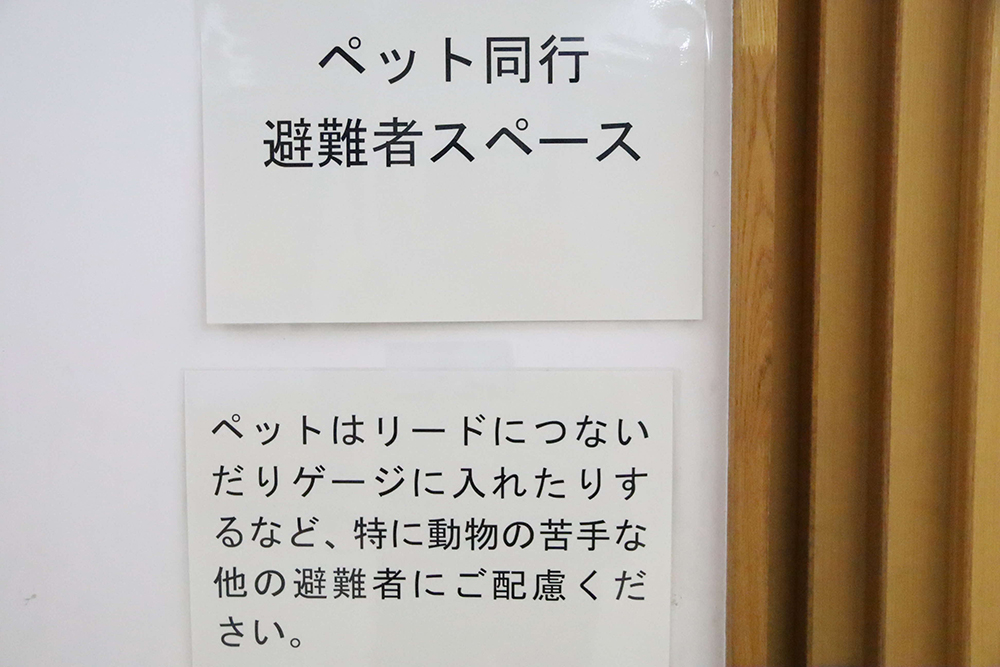 ペット同行
避難者スペース
ペットはリードにつない
だりゲージに入れたりす
るなど、特に動物の苦手な
他の避難者にご配慮くだ
さい。